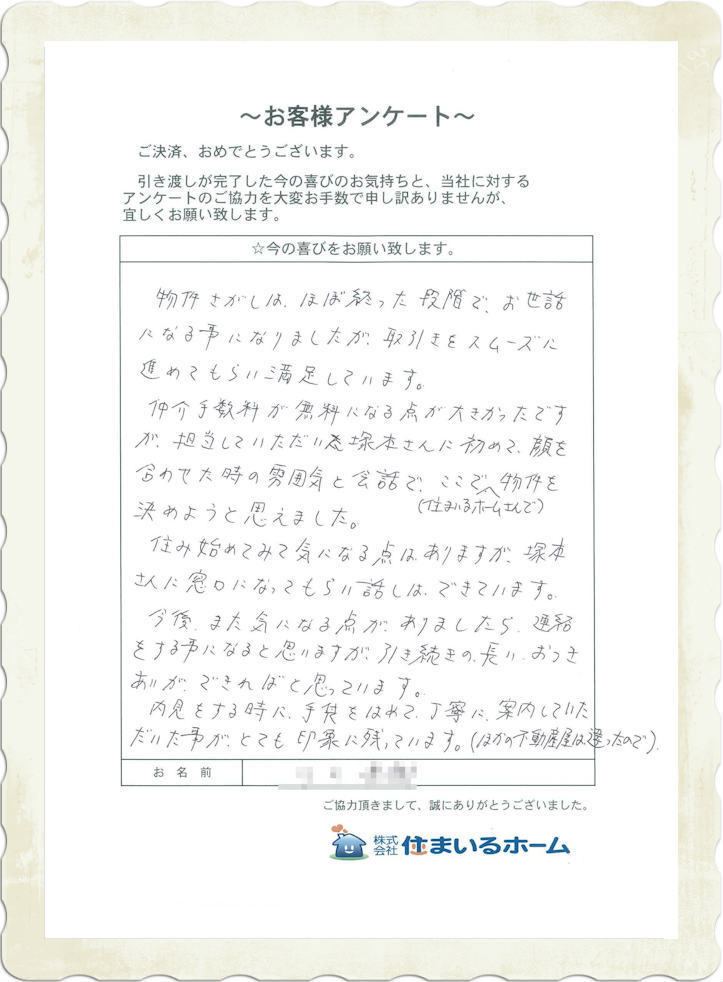 ～お客様アンケート～
ご決済、おめでとうございます。
引き渡しが完了した今の喜びのお気持ちと、当社に対する
アンケートのご協力を大変お手数で申し訳ありませんが、
宜しくお願い致します。
☆今の喜びをお願い致します。
物件さがしは、ほぼ終った段階で、お世話
になる事になりましたが、取引きをスムーズに
進めてもらい満足しています。
仲介手数料が無料になる点が大きかったです
が、担当していただいた塚本さんに初めて、顔を
合わせた時の雰囲気と会話で、ここで物件を
(住まいるホームさんで)
決めようと思えました。
住み始めてみて気になる点はありますが、塚本
さんに窓口になってもらい話しは、できています。
今後、また気になる点が、ありましたら、連絡
をする事になると思いますが、引き続きの、長い、おつき
あいが、できればと思っています。
内見をする時に、手袋をはめて、丁寧に、案内していた
だいた事が、とても印象に残っています。(ほかの不動産屋は違ったので).
お名前
ご協力頂きまして、誠にありがとうございました。
株式会社 住まいるホーム